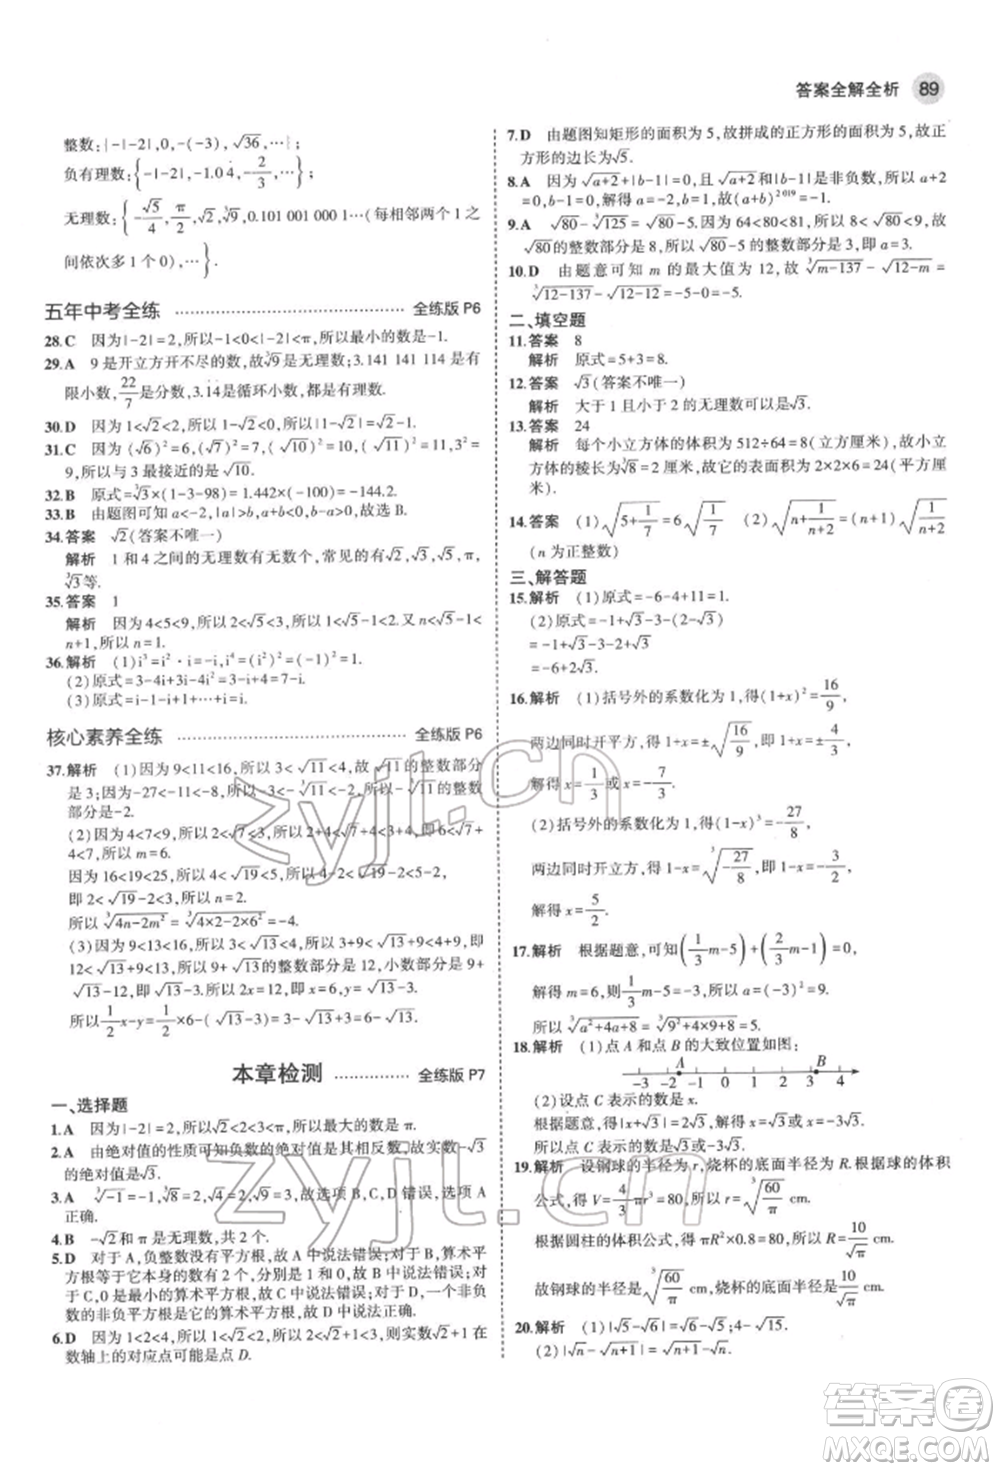 答案全解全析 89
整数:{-|-2|,0,-(-3),√36,…};
负有理数:{-|-2|,-1.0 4,-2/3,…};
无理数:{-√5/4,π/2,√2,∛9,0.101 001 000 1…(每相邻两个 1 之
间依次多 1 个 0),…}.
五年中考全练 …… 全练版 P6
28.C 因为|-2|=2,所以-1<0<|-2|<π,所以最小的数是-1.
29.A 9 是开立方开不尽的数,故∛9是无理数;3.141 141 114 是有
限小数,22/7是分数,3.14是循环小数,都是有理数.
30.D 因为 1<√2,所以 1-√2<0,所以|1-√2|=√2-1.
31.C 因为(√6)²=6,(√7)²=7,(√10)²=10,(√11)²=11,3²=
9,所以与 3 最接近的是√10.
32.B 原式=∛3×(1-3-98)=1.442×(-100)=-144.2.
33.B 由题图可知 a<-2,|a|>b,a+b<0,b-a>0,故选 B.
34.答案 √2(答案不唯一)
解析 1 和 4 之间的无理数有无数个,常见的有√2,√3,√5,
∛3等.
35.答案 1
解析 因为 4<5<9,所以 2<√5<3,所以 1<√5-1<2.又 n<√5-1<
n+1,所以 n=1.
36.解析 (1)i³=i²·i=-i,i⁴=(i²)²=(-1)²=1.
(2)原式=3-4i+3i-4i²=3-i+4=7-i.
(3)原式=i-1-i+1+…+i=i.
核心素养全练 …… 全练版 P6
37.解析 (1)因为 9<11<16,所以 3<√11<4.故√11的整数部分
是 3;因为-27<-11<-8,所以-3<∛-11<-2,所以∛-11的整数
部分是-2.
(2)因为 4<7<9,所以 2<√7<3,所以 2+4<√7+4<3+4,即 6<√7+
4<7,所以 m=6.
因为 16<19<25,所以 4<√19<5,所以 4-2<√19-2<5-2,
即 2<√19-2<3,所以 n=2.
所以∛4n-2m²=∛4×2-2×6²=-4.
(3)因为 9<13<16,所以 3<√13<4,所以 3+9<√13+9<4+9,即
12<√13+9<13,所以√13+9的整数部分是 12,小数部分是√13+
9-12=√13-3,所以 x-y=12-(√13-3),所以 x=6,y=√13-3,
所以1/2x-y=1/2×6-(√13-3)=3-√13+3=6-√13.
本章检测 …… 全练版 P7
一、选择题
1.A 因为|-2|=2,所以最大的数是|-2|.
2.A 由绝对值的性质可知负数的绝对值是其相反数,故实数-√3
的绝对值是√3.
3.A ∛-1=-1,∛8=2,|-2|=2,故选项 B,C,D 错误,选项 A 正
确.
4.B -√2和π是无理数,共 2 个.
5.D 对于 A,负整数没有平方根,故 A 中说法错误;对于 B,算术平
方根等于它本身的数有 2 个,分别是 1 和 0,故 B 中说法错误;
对于 C,0 是最小的算术平方根,故 C 中说法错误;对于 D,一个非负
数的非负平方根就是它的算术平方根,故 D 中说法正确.
6.D 因为 1<2<4,所以 1<√2<2,所以 0<√2-1<1,则实数√2-1在
数轴上的对应点可能是点 D.
7.D 由题图知矩形的面积为 5,故拼成的正方形的面积为 5,故正
方形的边长为√5.
8.A 因为√a+2+|b-1|=0,且√a+2和|b-1|是非负数,所以 a+2
=0,b-1=0.解得 a=-2,b=1,故(a+b)²⁰¹⁹=-1.
9.A √80-∛125=√80-5.因为 64<80<81,所以 8<√80<9,所以
√80的整数部分是 8,所以√80-5的整数部分是 3,即 a=3.
10.D 由题意可知 m 的最大值为 12,故∛m-137-√12-m=
∛12-137-√12-12=-5-0=-5.
二、填空题
11.答案 8
解析 原式=5+3=8.
12.答案 √3(答案不唯一)
解析 大于 1 且小于 2 的无理数可以是√3.
13.答案 24
解析 每个小立方体的体积为 512÷64=8(立方厘米),故小立
方体的棱长为∛8=2 厘米,故它的表面积为 2×2×6=24(平方厘
米).
14.答案 (1)√5+1/7=6√1/7 (2)√n+1/(n+2)=(n+1)√1/(n+2)
(n 为正整数)
三、解答题
15.解析 (1)原式=-6-4+11=1.
(2)原式=-1+√3-3×2-2+3+√3
=-1+√3-3-2+√3
=-6+2√3.
16.解析 (1)括号外的系数化为 1,得(1+x)²=16/9,
两边同时开平方,得 1+x=±√16/9,即 1+x=±4/3,
解得 x=1/3或 x=-7/3.
(2)括号外的系数化为 1,得(1-x)³=-27/8,
两边同时开立方,得 1-x=∛-27/8,即 1-x=-3/2,
解得 x=5/2.
17.解析 根据题意,可知(1/3m-5)+(2/3m-1)=0,
解得 m=6,所以1/3m-5=-3,所以 a=(-3)²=9.
所以∛a²+4a+8=∛9²+4×9+8=5.
18.解析 (1)点 A 和点 B 的大致位置如图:
A B
-3 -2 -1 0 1 2 3 4
(2)设点 C 表示的数是 x.
根据题意,得|x+√3|=2√3,解得 x=√3或 x=-3√3.
所以点 C 表示的数是√3或-3√3.
19.解析 设钢球的半径为 r,烧杯的底面半径为 R.根据球的体积
公式,得 V=4/3πr³=80,所以 r=∛60/π cm.
根据圆柱的体积公式,得πR²×8=80,所以 R=√10/√π cm.
故钢球的半径是∛60/π cm,烧杯的底面半径是√10/√π cm.
20.解析 (1)|√5-√6|=√6-√5;4-√15.
(2)|√n-√n+1|=√n+1-√n.
zyjl.cn
zyjl.cn
答案圈
MXQE.COM